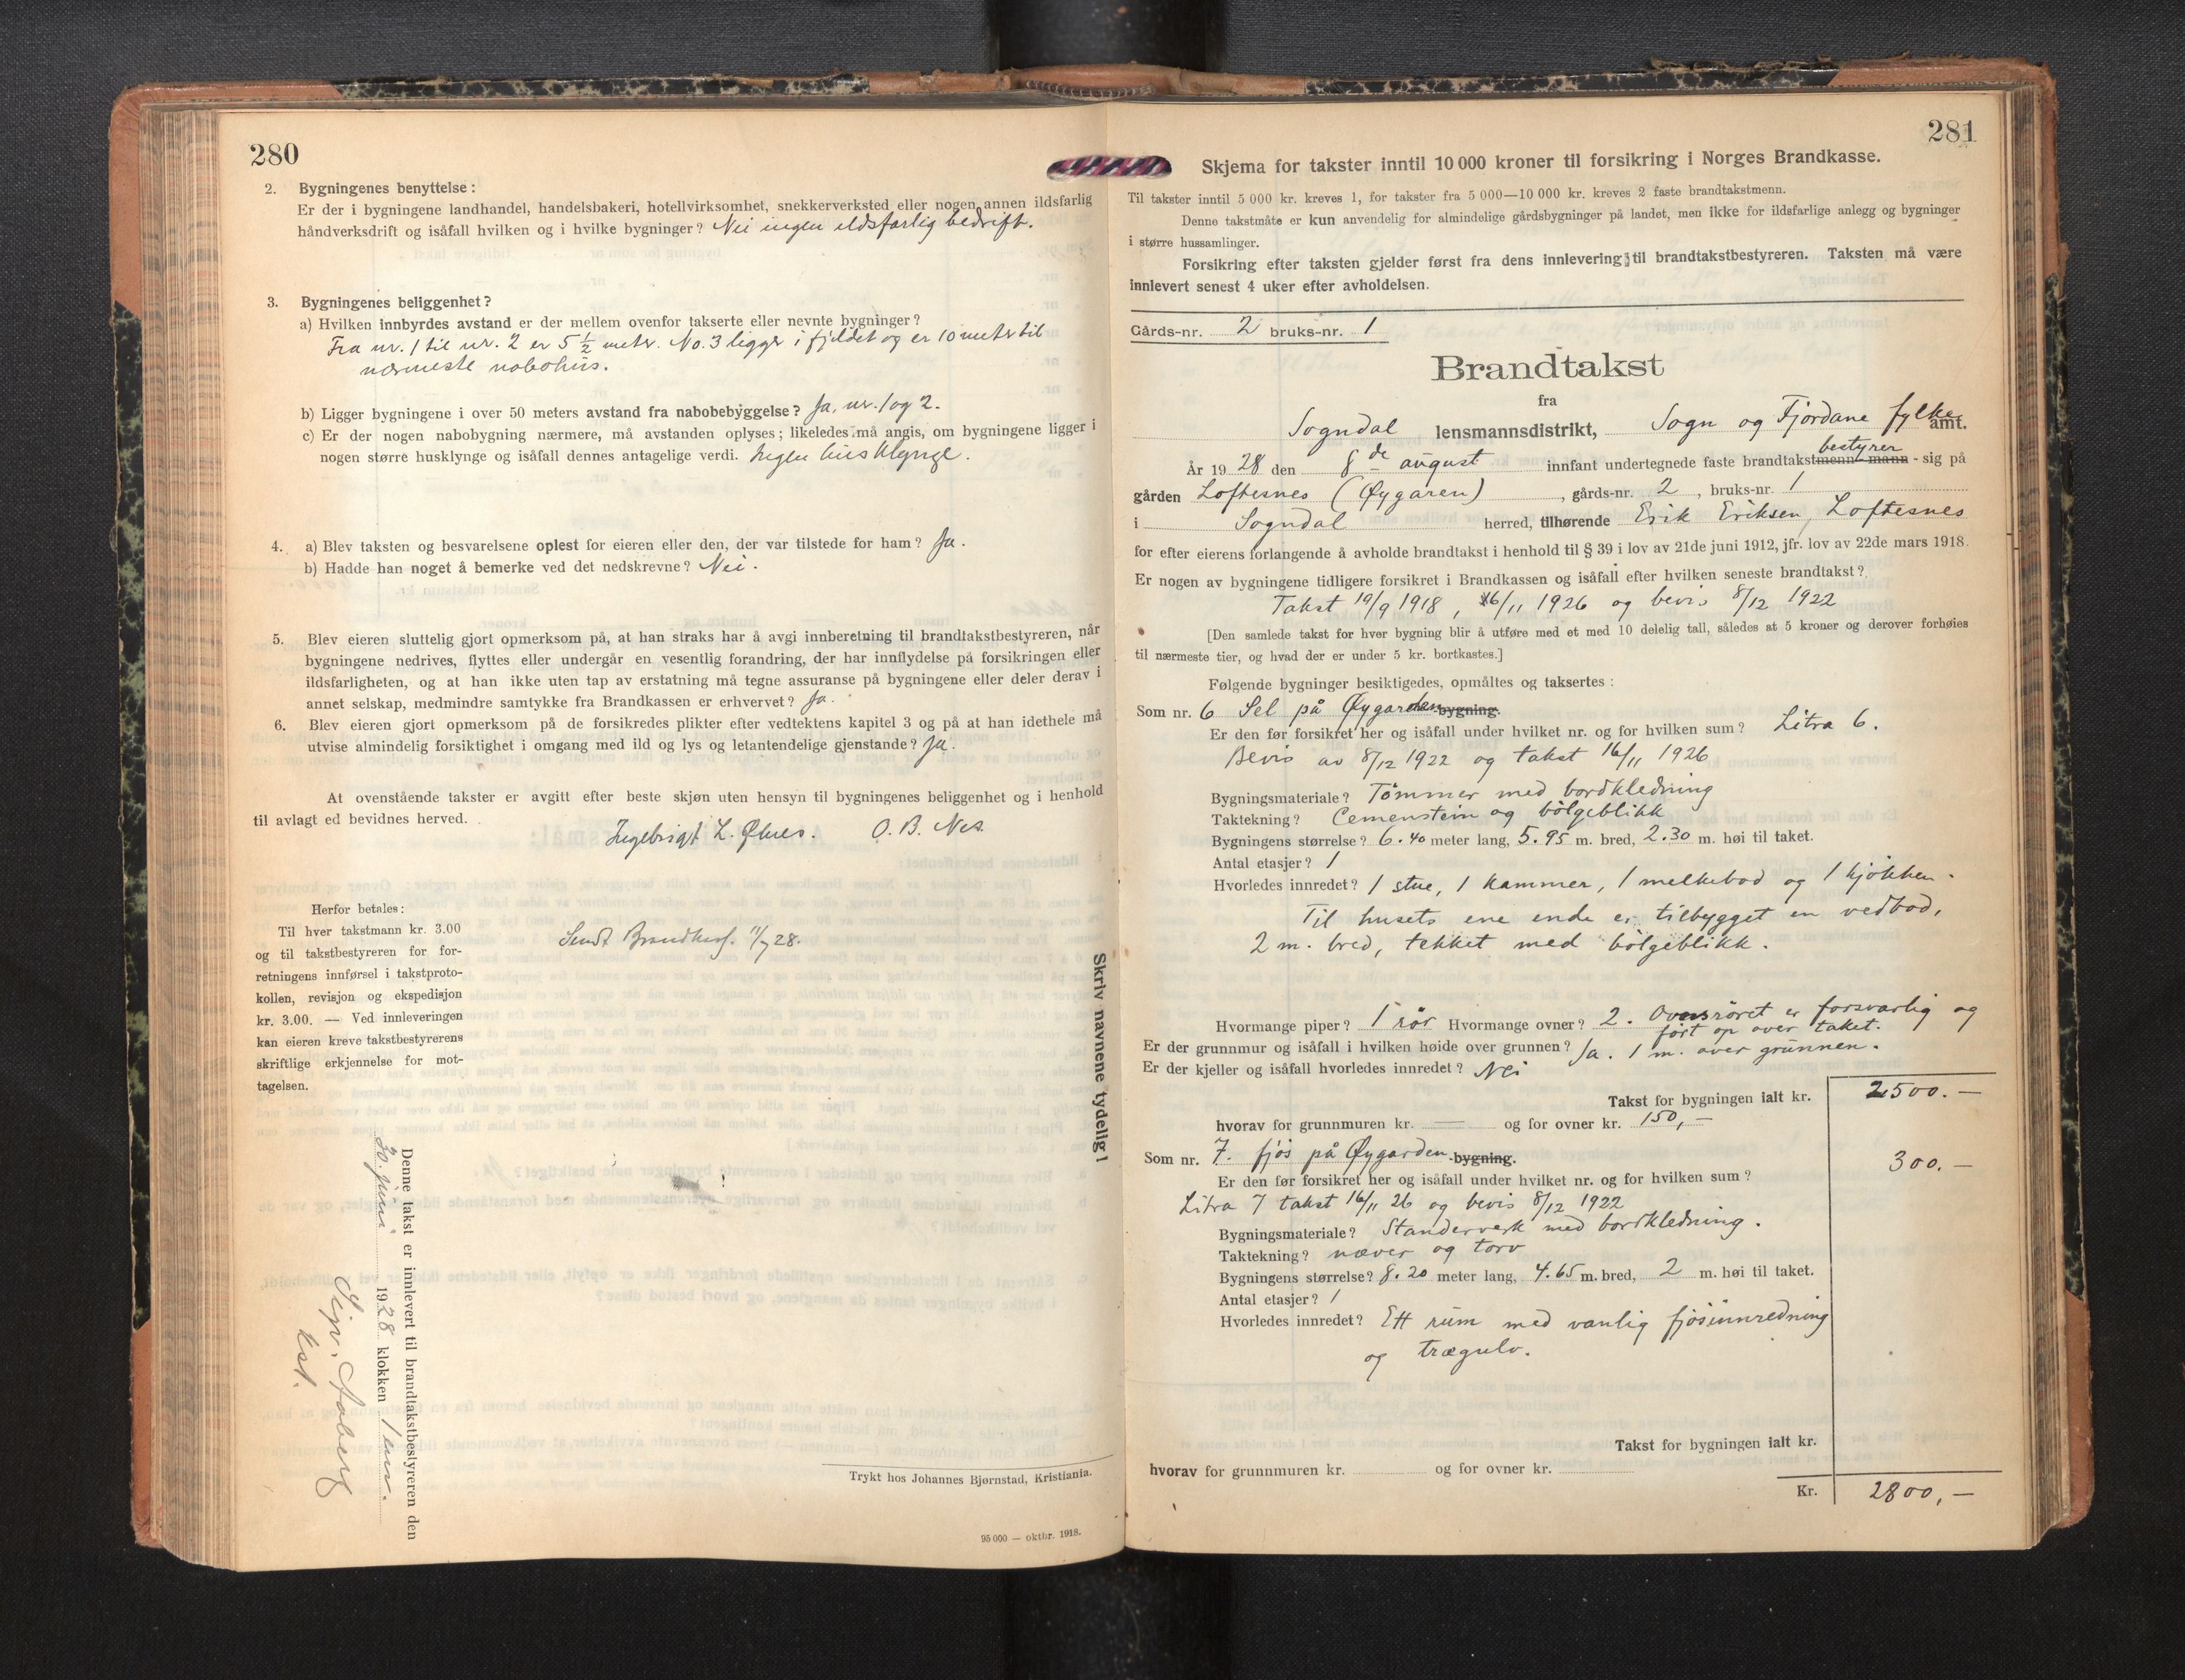 280
2. Bygningenes benyttelse:
Er der i bygningene landhandel, handelsbakeri, hotellvirksomhet, snekkerverksted eller nogen annen ildsfarlig
håndverksdrift og isåfall hvilken og i hvilke bygninger? Nei ingen ildsfarlig bedrift.
3. Bygningenes beliggenhet?
a) Hvilken innbyrdes avstand er der mellem ovenfor takserte eller nevnte bygninger?
Fra nr. 1 til nr. 2 er 5 1/2 meter. No. 3 ligger i fjeldet og er 10 meter til
nærmeste nabohus.
b) Ligger bygningene i over 50 meters avstand fra nabobebyggelse? Ja, nr. 1 og 2.
c) Er der nogen nabobygning nærmere, må avstanden oplyses; likeledes må angis, om bygningene ligger i
nogen større husklynge og isåfall dennes antagelige verdi. Ingen husklynge.
4. a) Blev taksten og besvarelsene oplest for eieren eller den, der var tilstede for ham? Ja.
b) Hadde han noget å bemerke ved det nedskrevne? Nei.
5. Blev eieren sluttelig gjort opmerksom på, at han straks har å avgi innberetning til brandtakstbestyreren, når
bygningene nedrives, flyttes eller undergår en vesentlig forandring, der har innflydelse på forsikringen eller
ildsfarligheten, og at han ikke uten tap av erstatning må tegne assuranse på bygningene eller deler derav i
annet selskap, medmindre samtykke fra Brandkassen er erhvervet? Ja.
6. Blev eieren gjort opmerksom på de forsikredes plikter efter vedtektens kapitel 3 og på at han idethele må
utvise almindelig forsiktighet i omgang med ild og lys og letantendelige gjenstande? Ja.
At ovenstående takster er avgitt efter beste skjøn uten hensyn til bygningenes beliggenhet og i henhold
til avlagt ed bevidnes herved.
Ingebrigt L. O. B. Nes.
Herfor betales:
Til hver takstmann kr. 3.00
og til takstbestyreren for for-
retningens innførsel i takstproto-
kollen, revisjon og ekspedisjon
kr. 3.00. — Ved innleveringen
kan eieren kreve takstbestyrerens
skriftlige erkjennelse for mot-
tagelsen.
Sendt Brandkass. 11/7 28.
Skriv navnene tydelig!
Denne takst er innlevert til brandtakstbestyreren den
30. juni 1928 klokken 1 em.
kst.
Trykt hos Johannes Bjørnstad, Kristiania.
95 000 — oktbr. 1918.
281
Skjema for takster inntil 10 000 kroner til forsikring i Norges Brandkasse.
Til takster inntil 5 000 kr. kreves 1, for takster fra 5 000—10 000 kr. kreves 2 faste brandtakstmenn.
Denne takstmåte er kun anvendelig for almindelige gårdsbygninger på landet, men ikke for ildsfarlige anlegg og bygninger
i større hussamlinger.
Forsikring efter taksten gjelder først fra dens innlevering til brandtakstbestyreren. Taksten må være
innlevert senest 4 uker efter avholdelsen.
Gårds-nr. 2 bruks-nr. 1
Brandtakst
fra
Sogndal lensmannsdistrikt, Sogn og Fjordane fylke amt.
bestyrer
År 1928 den 8de august innfant undertegnede faste brandtakstmenn-mann - sig på
gården Loftesnes (Øygaren), gårds-nr. 2, bruks-nr. 1
i Sogndal herred, tilhørende Erik Eriksen, Loftesnes
for efter eierens forlangende å avholde brandtakst i henhold til § 39 i lov av 21de juni 1912, jfr. lov av 22de mars 1918.
Er nogen av bygningene tidligere forsikret i Brandkassen og isåfall efter hvilken seneste brandtakst?
Takst 19/9 1918, 16/11 1926 og bevis 8/12 1922
[Den samlede takst for hver bygning blir å utføre med et med 10 delelig tall, således at 5 kroner og derover forhøies
til nærmeste tier, og hvad der er under 5 kr. bortkastes.]
Følgende bygninger besiktigedes, opmåltes og taksertes:
Som nr. 6 Sel på Øygarden bygning.
Er den før forsikret her og isåfall under hvilket nr. og for hvilken sum? Litra 6.
Bevis av 8/12 1922 og takst 16/11 1926
Bygningsmateriale? Tømmer med bordkledning
Taktekning? Cemenstein og bølgeblikk
Bygningens størrelse? 6.40 meter lang, 5.95 m. bred, 2.30 m. høi til taket.
Antal etasjer? 1
Hvorledes innredet? 1 stue, 1 kammer, 1 melkebod og 1 kjøkken.
Til husets ene ende er tilbygget en vedbod,
2 m. bred, tekket med bølgeblikk.
Hvormange piper? 1 rør Hvormange ovner? 2. Ovnsrøret er forsvarlig og
ført op over taket.
Er der grunnmur og isåfall i hvilken høide over grunnen? Ja. 1 m. over grunnen.
Er der kjeller og isåfall hvorledes innredet? Nei
Takst for bygningen ialt kr. 2500.—
hvorav for grunnmuren kr. — og for ovner kr. 150,—
Som nr. 7. fjøs på Øygarden bygning. 300.—
Er den før forsikret her og isåfall under hvilket nr. og for hvilken sum?
Litra 7 takst 16/11 26 og bevis 8/12 1922
Bygningsmateriale? Standerverk med bordkledning.
Taktekning? næver og torv
Bygningens størrelse? 8.20 meter lang, 4.65 m. bred, 2 m. høi til taket.
Antal etasjer? 1
Hvorledes innredet? Ett rum med vanlig fjøsinnredning
og trægulv.
Takst for bygningen ialt kr.
hvorav for grunnmuren kr. og for ovner kr.
Kr. 2800,—